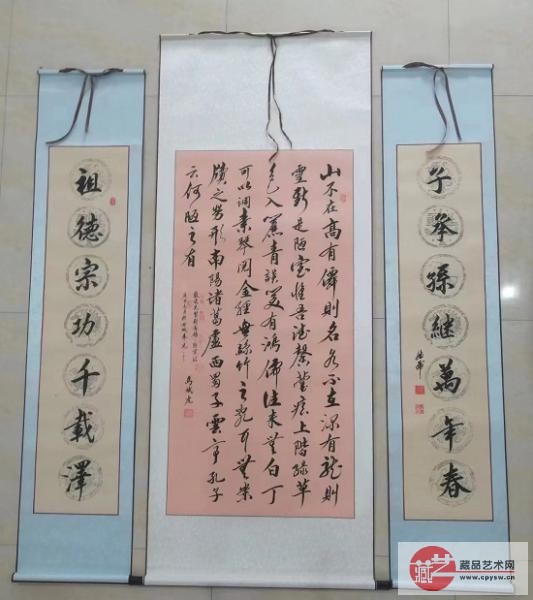 祖德宗功千載澤
山不在高有僊則名水不在深有龍則
靈斯是陋室惟吾德馨苔痕上階綠草
色入簾青談笑有鴻儒往来無白丁
可以調素琴閱金經無絲竹之亂耳無案
牘之勞形南陽諸葛廬西蜀子雲亭孔子
云何陋之有
子承孫繼萬年春
藏品艺术网
www.cpysw.cn